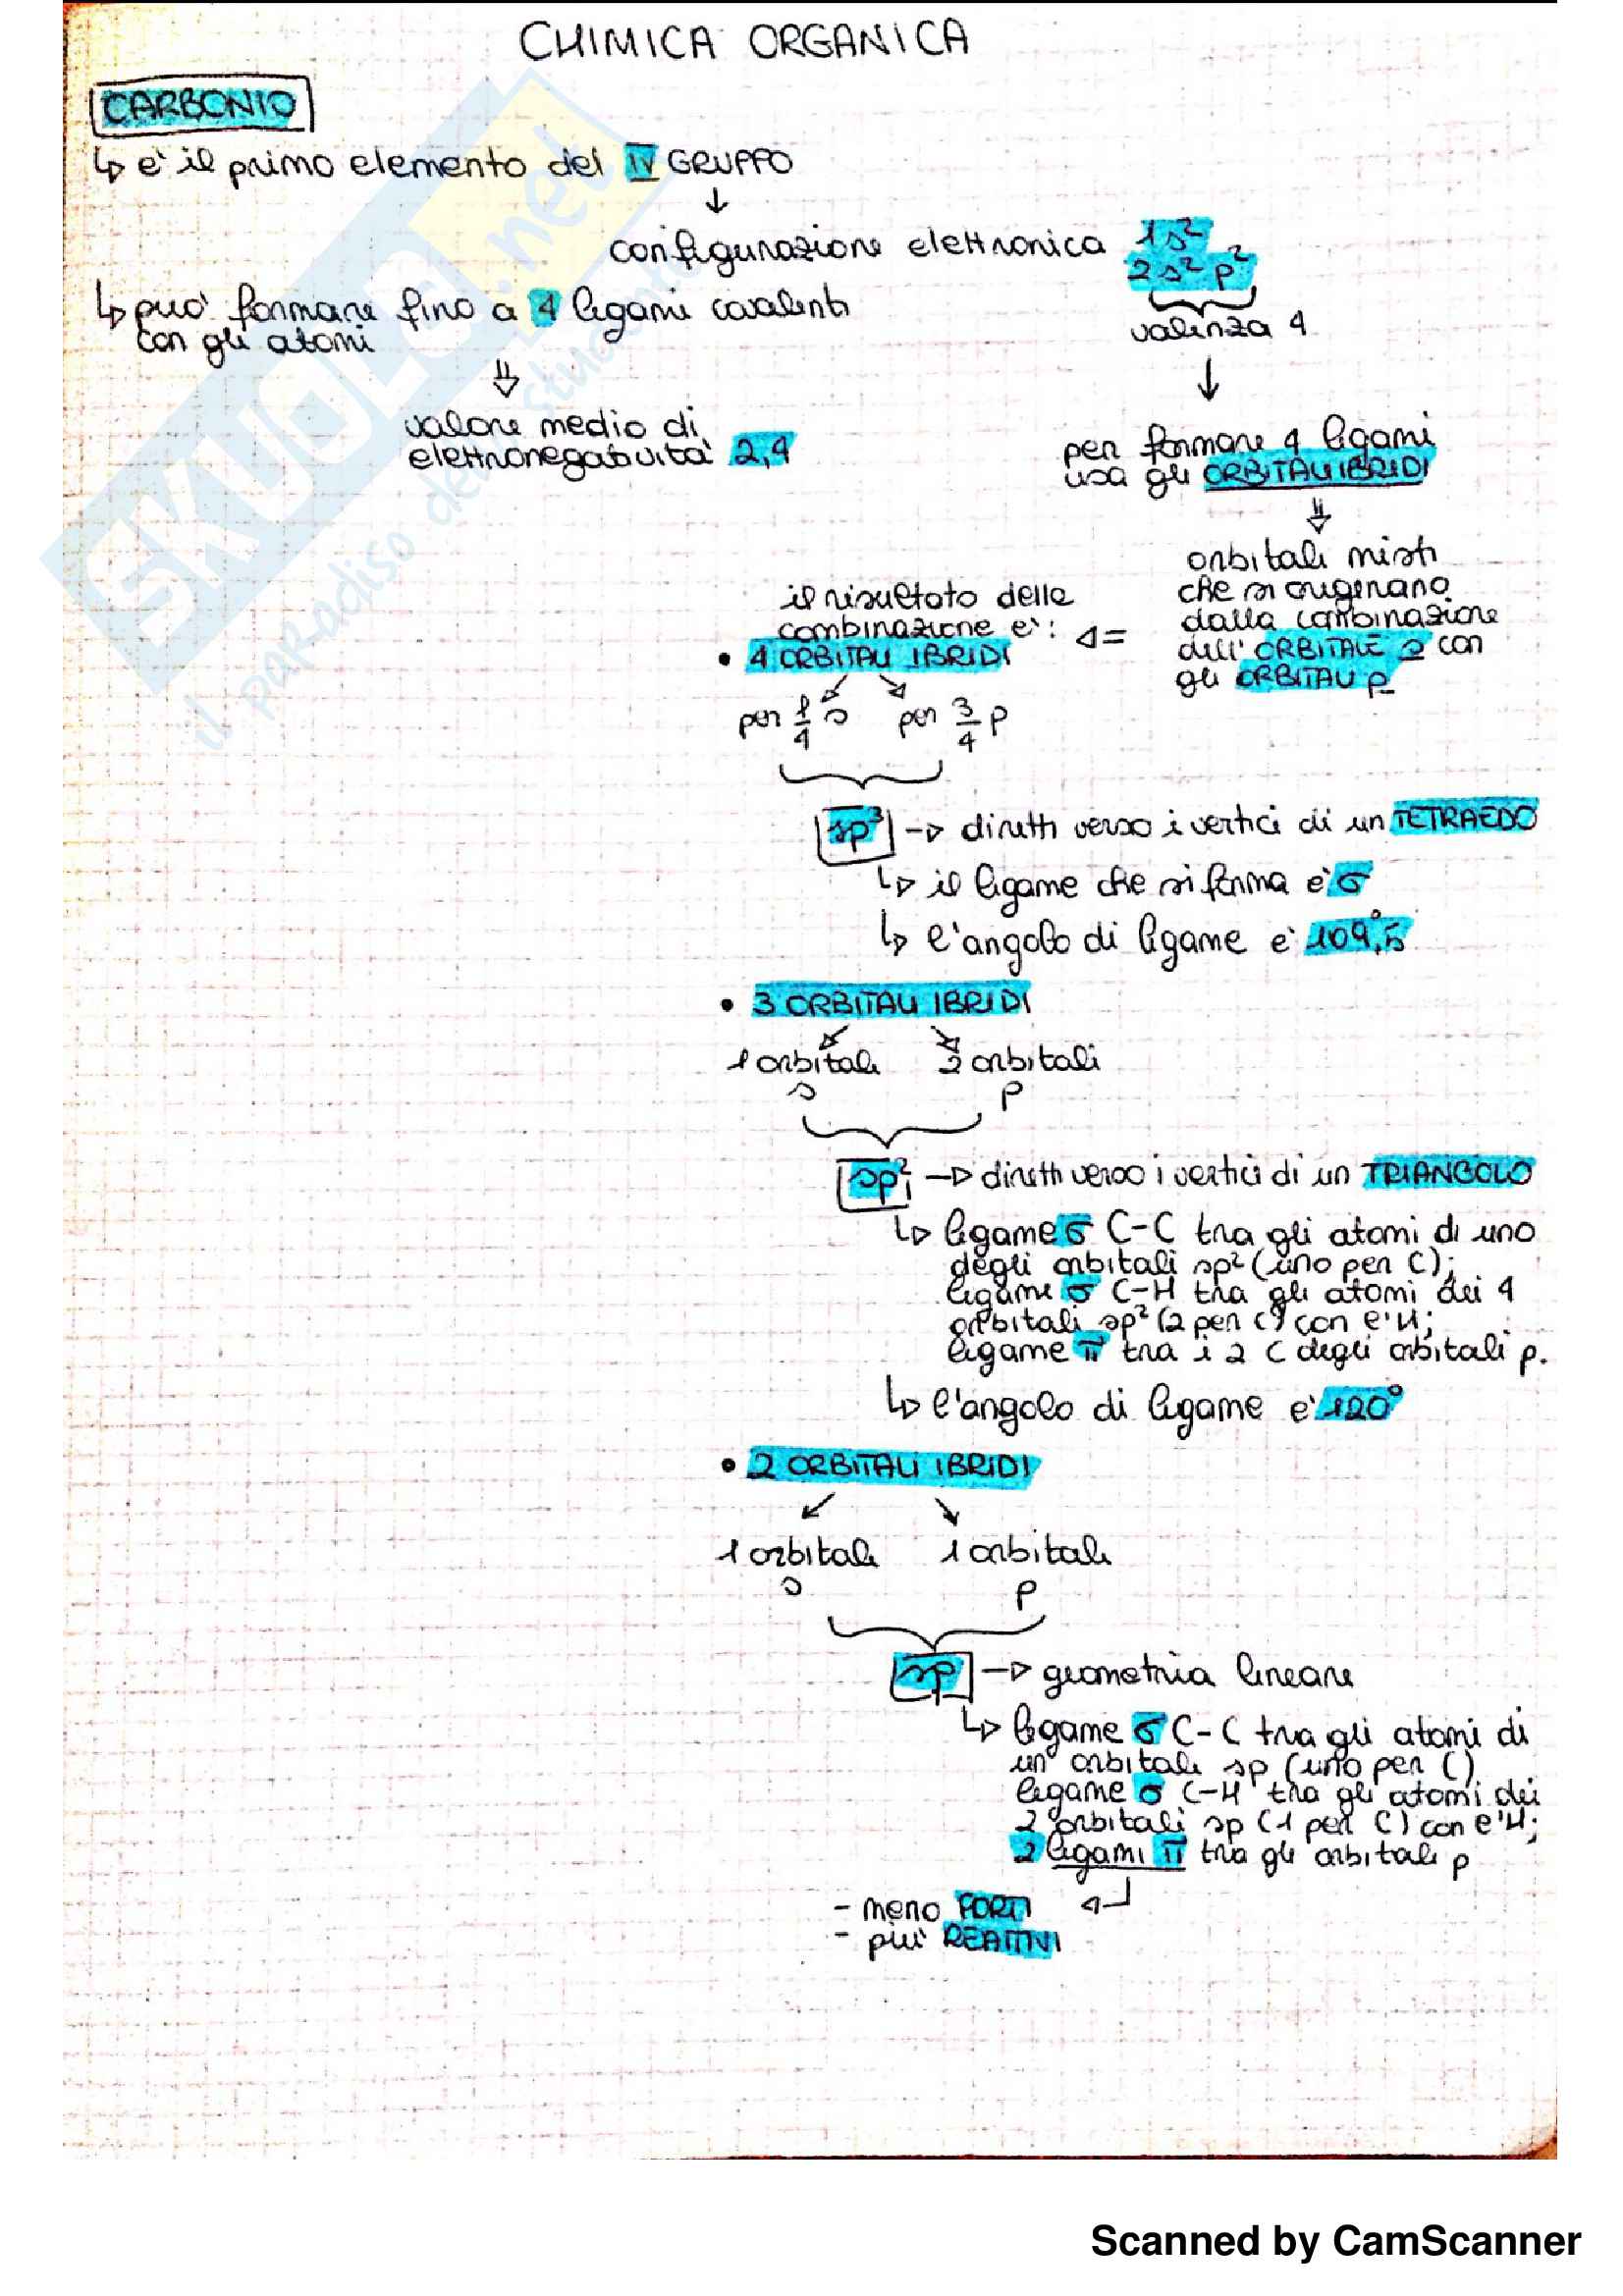 CHIMICA ORGANICA
CARBONIO
↳ e' il primo elemento del IV GRUPPO
↓
configurazione elettronica 1s²
2s² p²
valenza 4
↳ puo' formare fino a 4 legami covalenti
con gli atomi
⇓
valore medio di
elettronegatività 2,4
↓
per formare 4 legami
usa gli ORBITALI IBRIDI
⇓
orbitali misti
che si originano
dalla combinazione
dell'ORBITALE s con
gli ORBITALI p
il risultato della
combinazione e':
• 4 ORBITALI IBRIDI
per 1/4 s per 3/4 p
sp³ → diretti verso i vertici di un TETRAEDO
↳ il legame che si forma e' σ
↳ l'angolo di legame e' 109,5°
• 3 ORBITALI IBRIDI
1 orbitale 2 orbitali
s p
sp² → diretti verso i vertici di un TRIANGOLO
↳ legame σ C-C tra gli atomi di uno
degli orbitali sp² (uno per C);
legame σ C-H tra gli atomi dei 4
orbitali sp² (2 per C) con l'H;
legame π tra i 2 C degli orbitali p.
↳ l'angolo di legame e' 120°
• 2 ORBITALI IBRIDI
1 orbitale 1 orbitale
s p
sp → geometria lineare
↳ legame σ C-C tra gli atomi di
un orbitale sp (uno per C)
legame σ C-H tra gli atomi dei
2 orbitali sp (1 per C) con l'H;
2 legami π tra gli orbitali p
- meno FORTI
- più REATTIVI
SKUOLA.net
il paradiso dello studente
Scanned by CamScanner